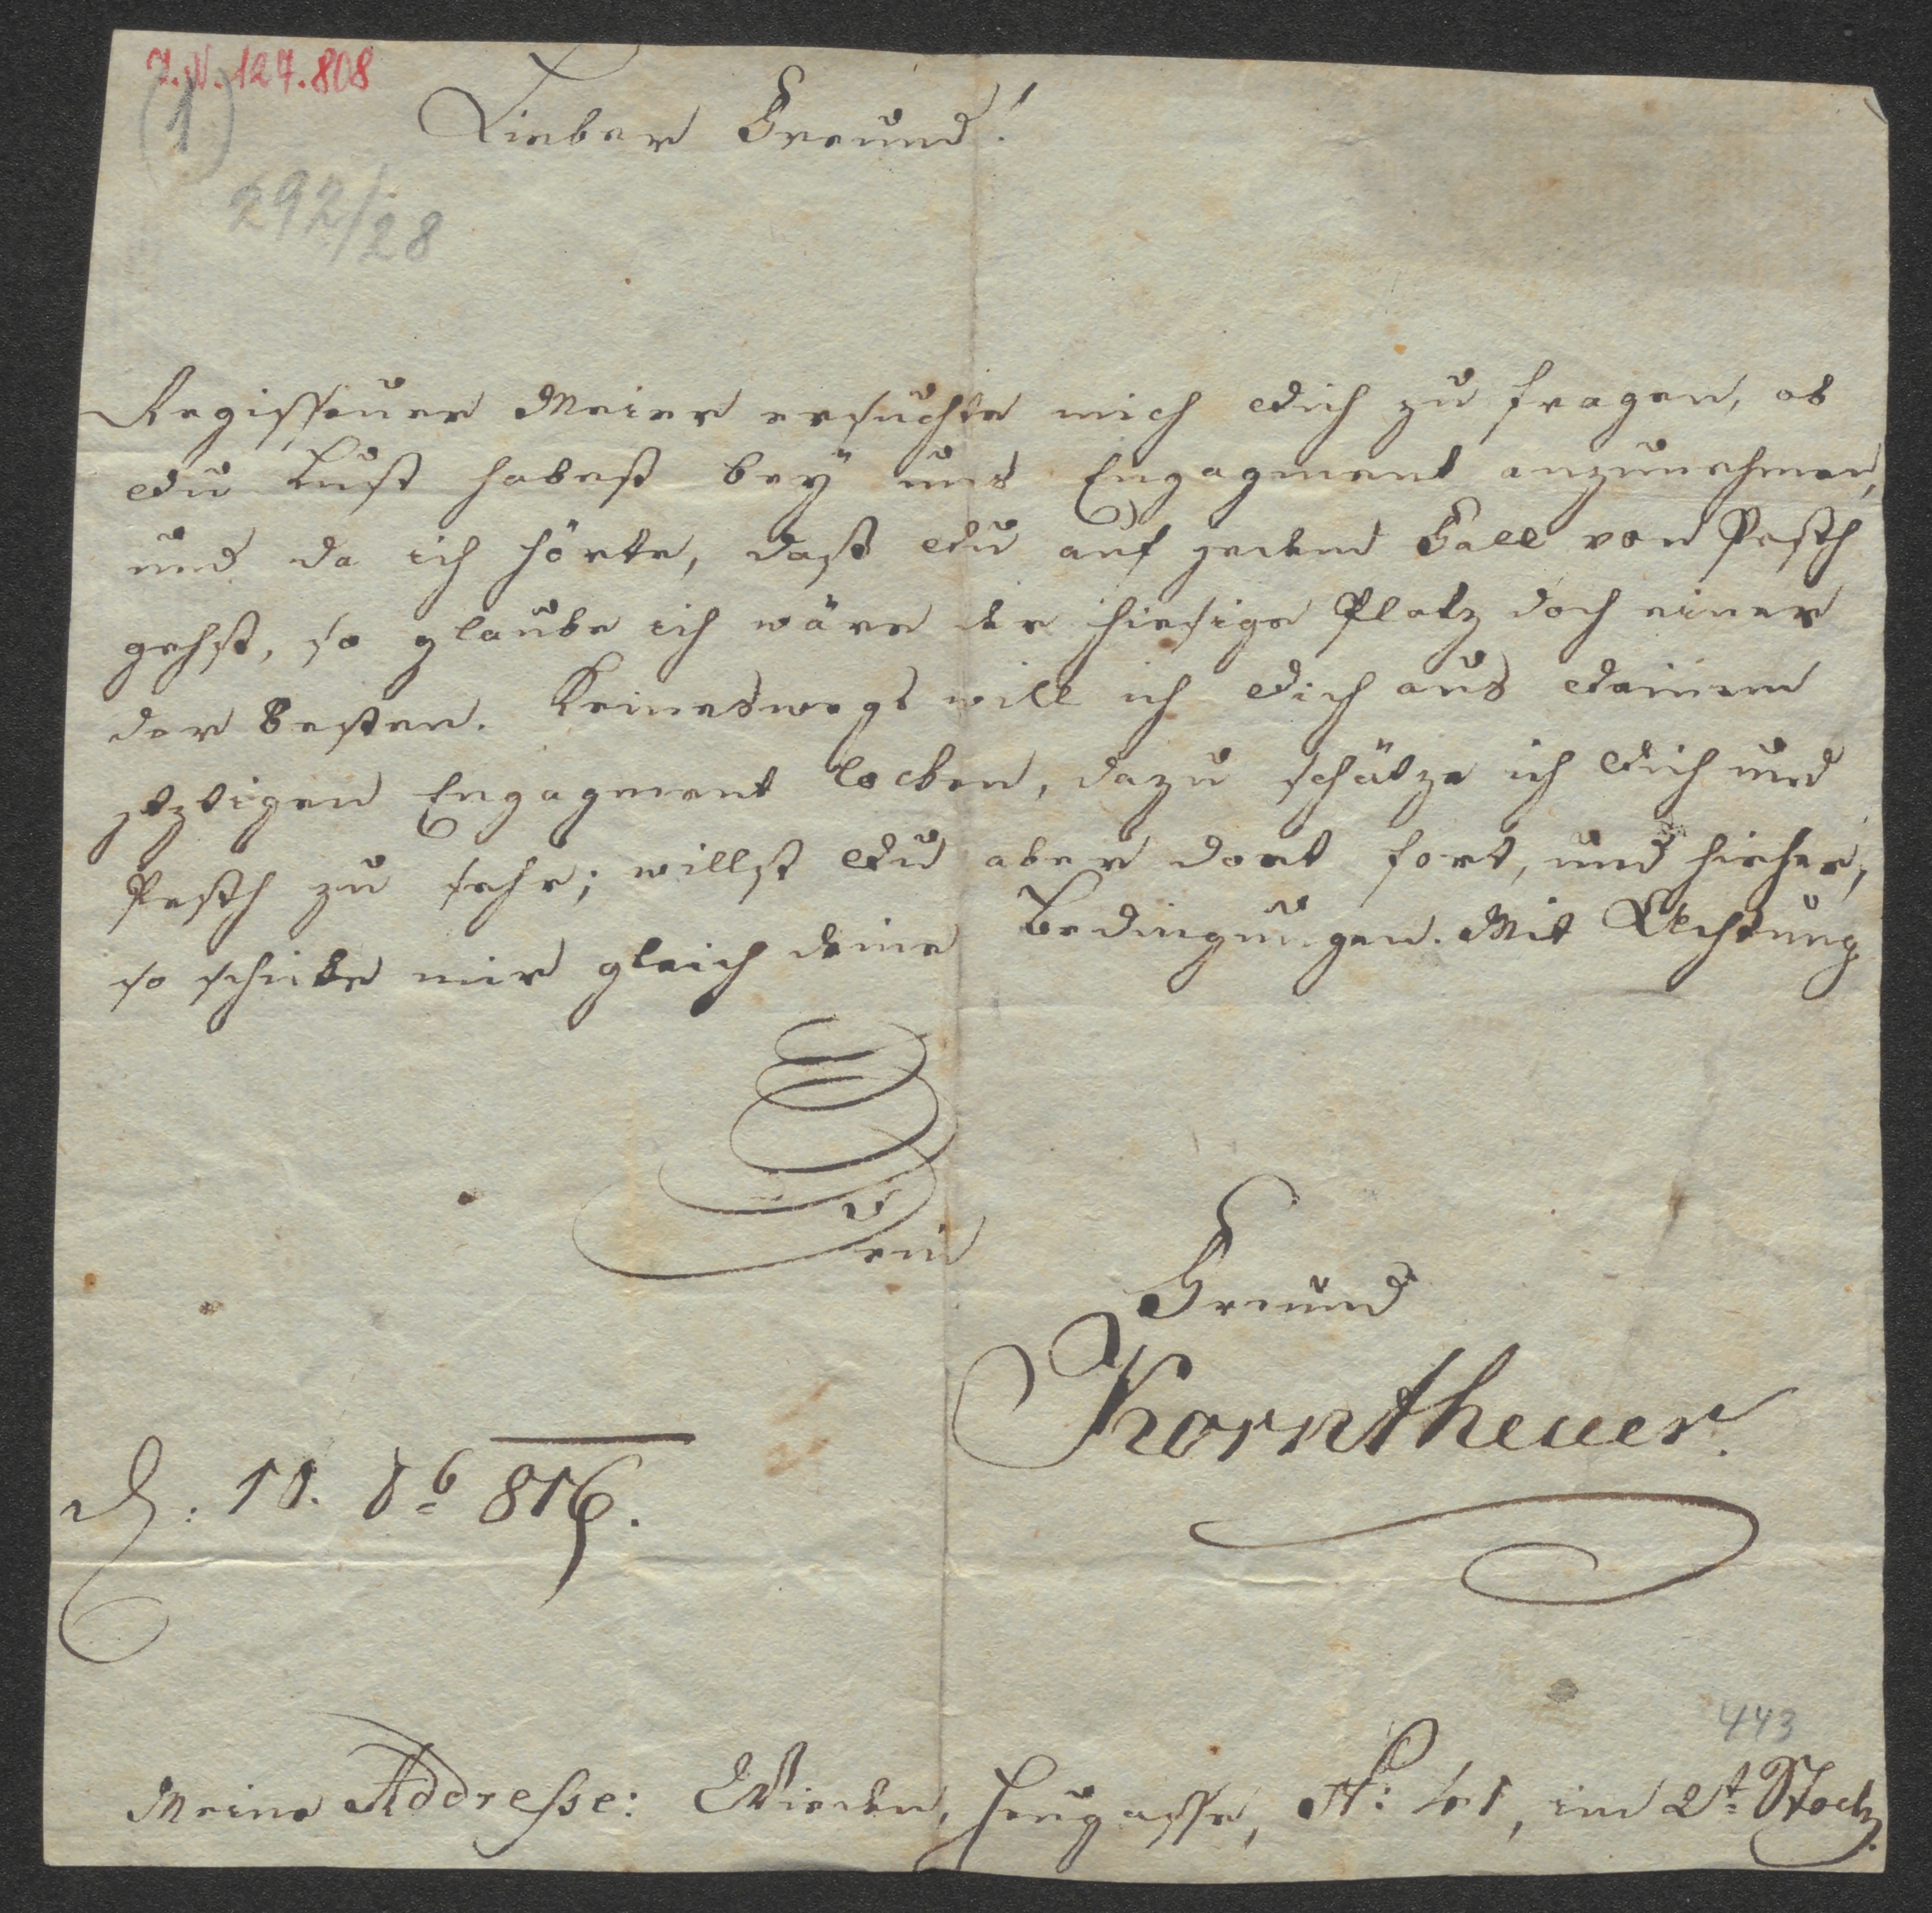 I.N. 127.808
(1)
Lieber Freund!
292/28
Regisseuer Meier ersuchte mich Dich zu fragen, ob
Du Lust habest beÿ uns Engagment anzunehmen,
und da ich hörte, daß Du auf jedend Fall von Pesth
gehst, so glaube ich wäre der hiesige Platz doch einer
der Besten. Keineswegs will ich Dich aus Deinem
jetztigen Engagment locken, dazu schätze ich Dich und
Pesth zu sehr; willst Du aber dort fort, und hieher,
so schicke mir gleich deine Bedingungen. Mit Achtung
Dein
Freund
Korntheuer.
D: 18. 8b 816.
443
Meine Addresse: Wieden, Heugasse, N: 41, im 2t Stock.